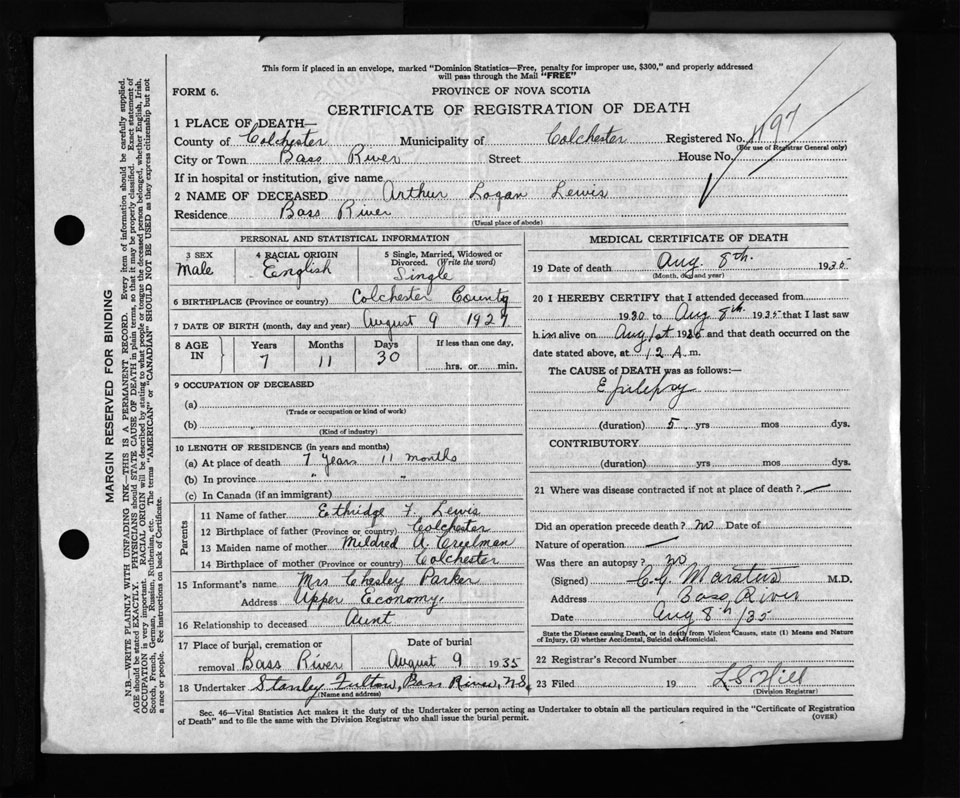 This form if placed in an envelope, marked "Dominion Statistics—Free, penalty for improper use, $300," and properly addressed
will pass through the Mail "FREE"
FORM 6.
PROVINCE OF NOVA SCOTIA
CERTIFICATE OF REGISTRATION OF DEATH
1 PLACE OF DEATH—
County of Colchester Municipality of Colchester Registered No.
(For use of Registrar General only)
City or Town Bass River Street House No.
If in hospital or institution, give name
2 NAME OF DECEASED Arthur Logan Lewis
Residence Bass River
(Usual place of abode)
PERSONAL AND STATISTICAL INFORMATION
3 SEX Male
4 RACIAL ORIGIN English
5 Single, Married, Widowed or
Divorced. (Write the word)
Single
6 BIRTHPLACE (Province or country) Colchester County
7 DATE OF BIRTH (month, day and year) August 9 1927
8 AGE IN
Years Months Days If less than one day,
7 11 30 hrs. or min.
9 OCCUPATION OF DECEASED
(a)
(Trade or occupation or kind of work)
(b)
(Kind of industry)
10 LENGTH OF RESIDENCE (in years and months)
(a) At place of death 7 Years 11 months
(b) In province " "
(c) In Canada (if an immigrant)
Parents
11 Name of father Ethridge F. Lewis
12 Birthplace of father (Province or country) Colchester
13 Maiden name of mother Mildred A. Creelman
14 Birthplace of mother (Province or country) Colchester
15 Informant's name Mrs Chesley Parker
Address Upper Economy
16 Relationship to deceased Aunt
17 Place of burial, cremation or Date of burial
removal Bass River August 9 1935
18 Undertaker Stanley Fulton, Bass River, N.S.
(Name and address)
MEDICAL CERTIFICATE OF DEATH
19 Date of death Aug. 8th. 1935
(Month, day and year)
20 I HEREBY CERTIFY that I attended deceased from
1930 to Aug 8th 1935 that I last saw
him alive on Aug 1st 1935 and that death occurred on the
date stated above, at 12 A.m.
The CAUSE of DEATH was as follows:—
Epilepsy
(duration) 5 yrs mos dys.
CONTRIBUTORY
(duration) yrs mos dys.
21 Where was disease contracted if not at place of death? —
Did an operation precede death? no Date of
Nature of operation —
Was there an autopsy? no
(Signed) M.D.
Address Bass River
Date Aug 8th /35
State the Disease causing Death, or in death from Violent Causes, state (1) Means and Nature
of Injury, (2) whether Accidental, Suicidal or Homicidal.
22 Registrar's Record Number
23 Filed 19 L S Hill
(Division Registrar)
Sec. 46—Vital Statistics Act makes it the duty of the Undertaker or person acting as Undertaker to obtain all the particulars required in the "Certificate of Registration
of Death" and to file the same with the Division Registrar who shall issue the burial permit.
(OVER)
MARGIN RESERVED FOR BINDING
N.B.—WRITE PLAINLY WITH UNFADING INK—THIS IS A PERMANENT RECORD. Every item of information should be carefully supplied.
AGE should be stated EXACTLY. PHYSICIANS should STATE CAUSE OF DEATH in plain terms, so that it may be properly classified. Exact statement of
OCCUPATION is very important. RACIAL ORIGIN will be described by stating to what people or tongue the deceased person belonged, whether English, Irish,
Scotch, French, German, Russian, Ruthenian, etc. The terms "AMERICAN" or "CANADIAN" SHOULD NOT BE USED as they express citizenship but not
a race or people. See instructions on back of Certificate.